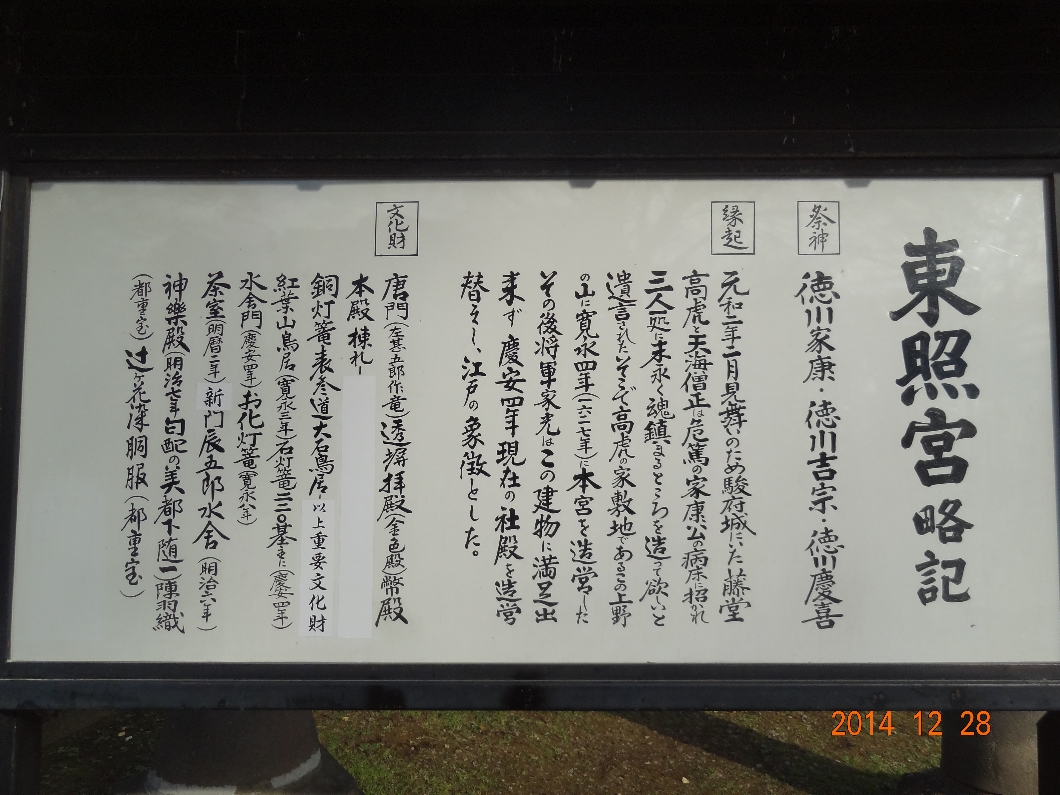 東照宮略記
祭神
徳川家康・徳川吉宗・徳川慶喜
縁起
元和二年二月見舞いのため駿府城にいた藤堂
高虎と天海僧正は危篤の家康公の病床に招かれ
三人一処に末永く魂鎮まるところを造って欲しいと
遺言されたいそこで高虎の家敷地であるこの上野
の山に寛永四年(一六二七年)に本宮を造営した
その後将軍家光はこの建物に満足出
来ず慶安四年現在の社殿を造営
替えし、江戸の象徴とした。
文化財
唐門(左甚五郎作竜)透塀拝殿(金色殿)幣殿
本殿棟札
銅灯篭表参道大石鳥居以上重要文化財
紅葉山鳥居(寛永三年)石灯篭二二〇基(慶安四年)
水舎門(慶安四年)お化灯篭(寛永八年)
茶室(明暦二年)新門辰五郎水舎(明治六年)
神樂殿(明治七年)勾配の美都下随一)陳羽織
(都重宝)辻ヶ花染胴服(都重宝)
2014 12 28